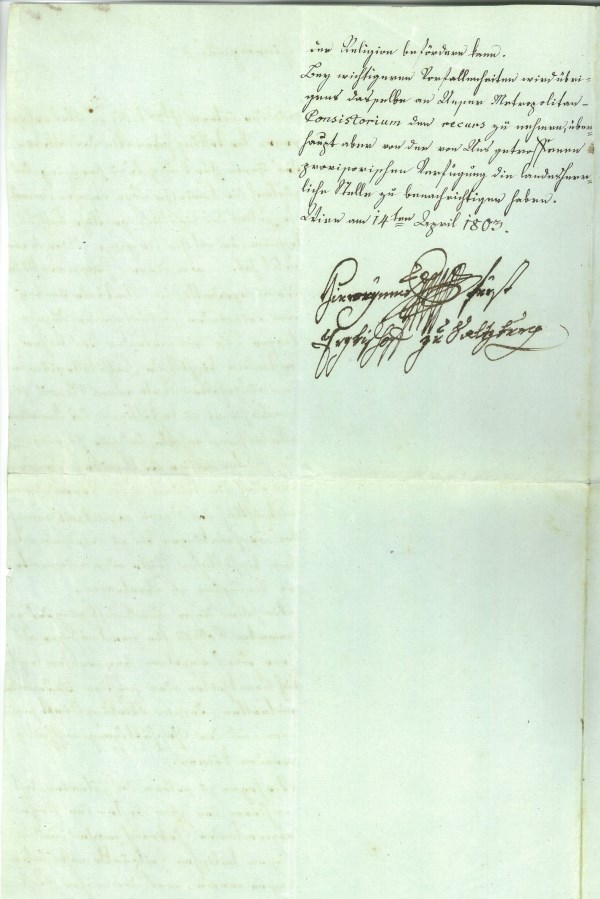 der Religion befördern kann.
Bey wichtigeren Vorfallenheiten wird übri-
gens dasselbe an Unser Metropolitan-
Consistorium den recurs zu nehmen, über-
haupt aber von der von Uns getroffenen
provisorischen Verfügung die landesherr-
liche Stelle zu benachrichtigen haben.
Wien am 14ten April 1803.
Hieronymus Fürst
Erzbischoff zu Salzburg